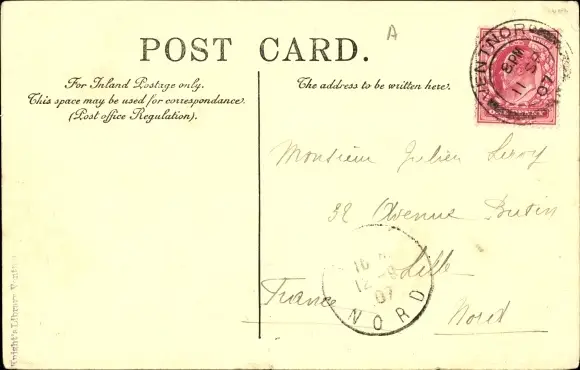 POST CARD.
For Inland Postage only.
This space may be used for correspondance.
(Post office Regulation).
The address to be written here.
A
VENTNOR
8 PM
11
07
Monsieur Julien Leroy
32 Avenue Butin
Lille
France
Nord
16
12-9
07
NORD
Knight's Library Ventnor